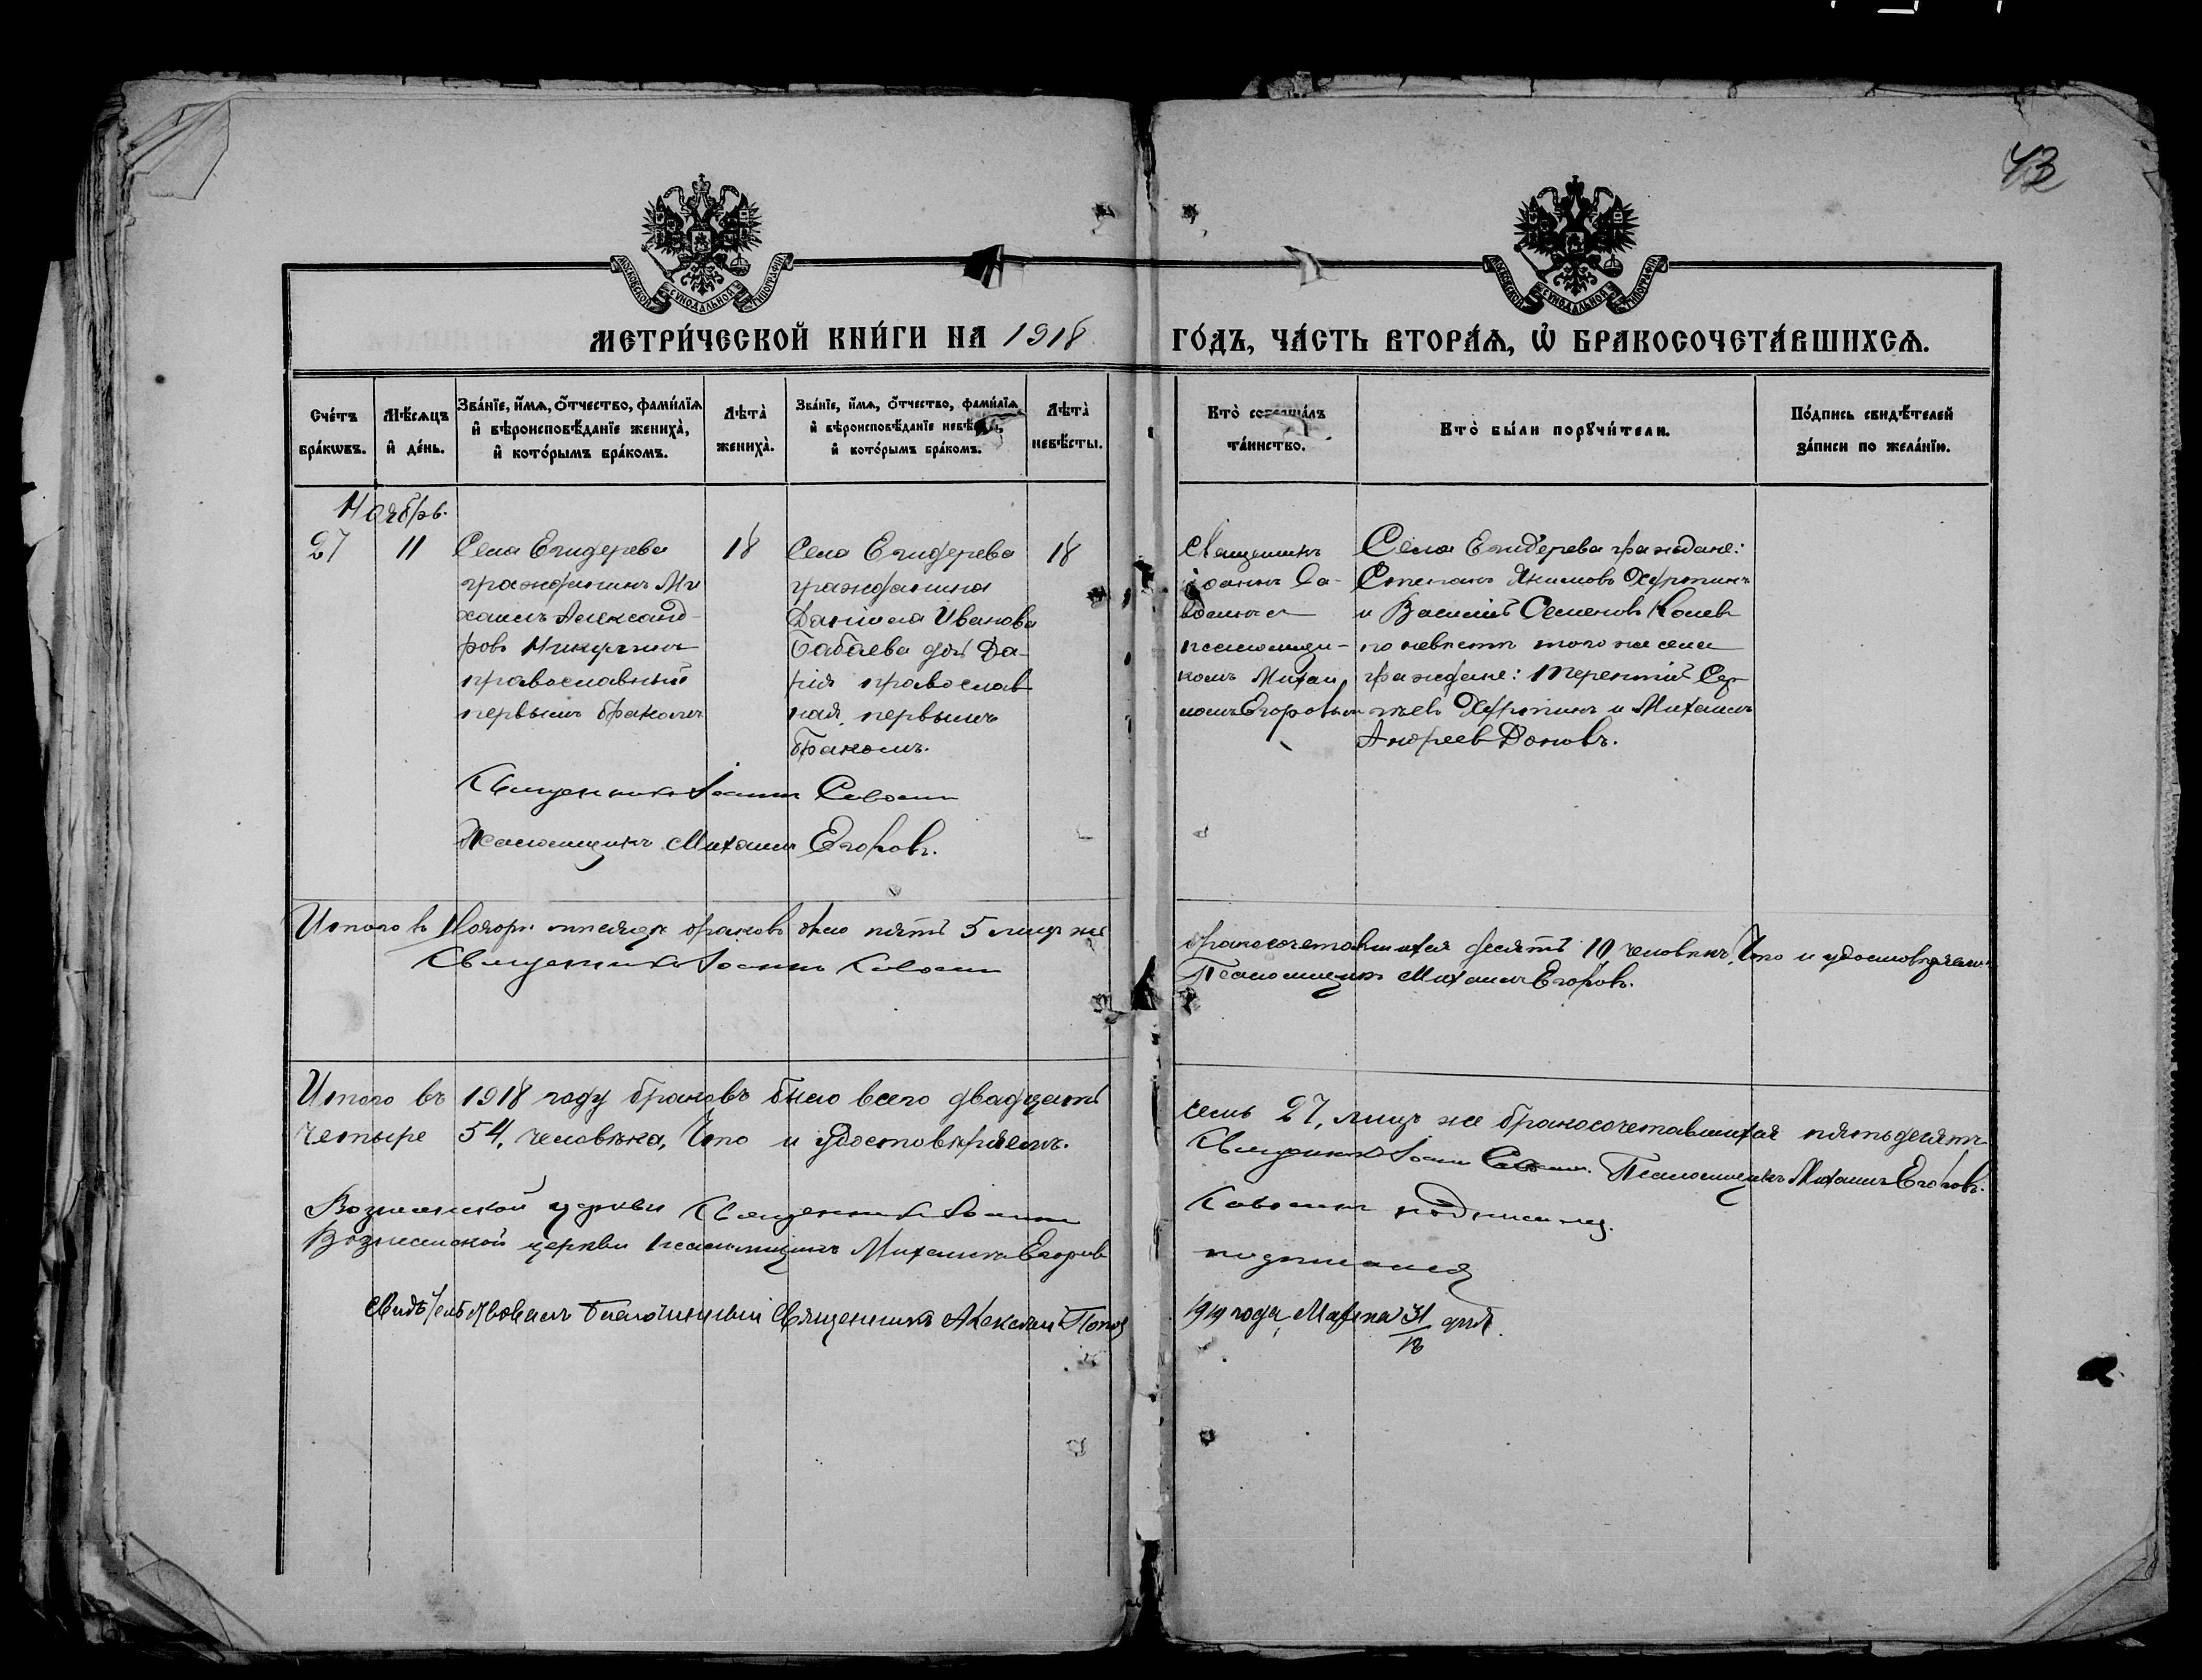 43
МОСКОВСКОЙ СѴНОДАЛЬНОЙ ТИПОГРАФІИ
МОСКОВСКОЙ СѴНОДАЛЬНОЙ ТИПОГРАФІИ
МЕТРИ́ЧЕСКОЙ КНИ́ГИ НА 1918 ГО́ДЪ, ЧА́СТЬ ВТОРА́Ѧ, Ѽ БРАКОСОЧЕТА́ВШИХСѦ.
Сче́тъ
бра́кѡвъ.
Мѣ́сѧцъ
и҆ де́нь.
Зва́нїе, и҆́мѧ, ѻ҆́тчество, фами́лїѧ
и҆ вѣроисповѣ́данїе жениха̀,
и҆ кото́рымъ бра́комъ.
Лѣ́та̀
жениха̀.
Зва́нїе, и҆́мѧ, ѻ҆́тчество, фами́лїѧ
и҆ вѣроисповѣ́данїе невѣ́сты,
и҆ кото́рымъ бра́комъ.
Лѣ́та̀
невѣ́сты.
Кто̀ соверша́лъ
та́инство.
Кто̀ бы́ли порꙋчи́тели.
По́дпись свидѣ́телей
за́писи по жела́нїю.
Ноябрь.
27
11
Села Егидерева
гражданинъ Ми
хаилъ Александ-
ровъ
православный
первымъ бракомъ
18
Села Егидерева
гражданина
Даніила Иванова
Бабаева дочь Да-
рія православ
ная, первымъ
бракомъ.
18
Священникъ
Іоаннъ
псаломщи-
комъ Михаи
ломъ Егоровым
Села Егидерева граждане:
Степанъ Якимовъ
и Василій Семенов
по невѣстѣ того же села
граждане: Терентій Сер-
гѣевъ и Михаилъ
Андреев Доновъ.
Священникъ Іоаннъ
Псаломщикъ Михаилъ Егоровъ.
Итого въ Ноябрѣ мѣсяцѣ браковъ было пять 5 лицъ же
бракосочетавшихся десять 10 человѣкъ, Что и удостовѣряемъ
Священникъ Іоаннъ
Псаломщикъ Михаилъ Егоровъ.
Итого въ 1918 году браковъ было всего двадцать
семь 27, лицъ же бракосочетавшихся пятьдесятъ
четыре 54, человѣка, Что и удостовѣряемъ.
Священникъ Іоаннъ Псаломщикъ Михаилъ Егоровъ.
Вознесенской церкви Священникъ Іоаннъ
подписалъ.
Вознесенской церкви псаломщикъ Михаилъ Егоров
подписался
Свидѣтельствовалъ Благочинный Священникъ Алексѣй Попов
1919 года, Марта 31/18 дня.